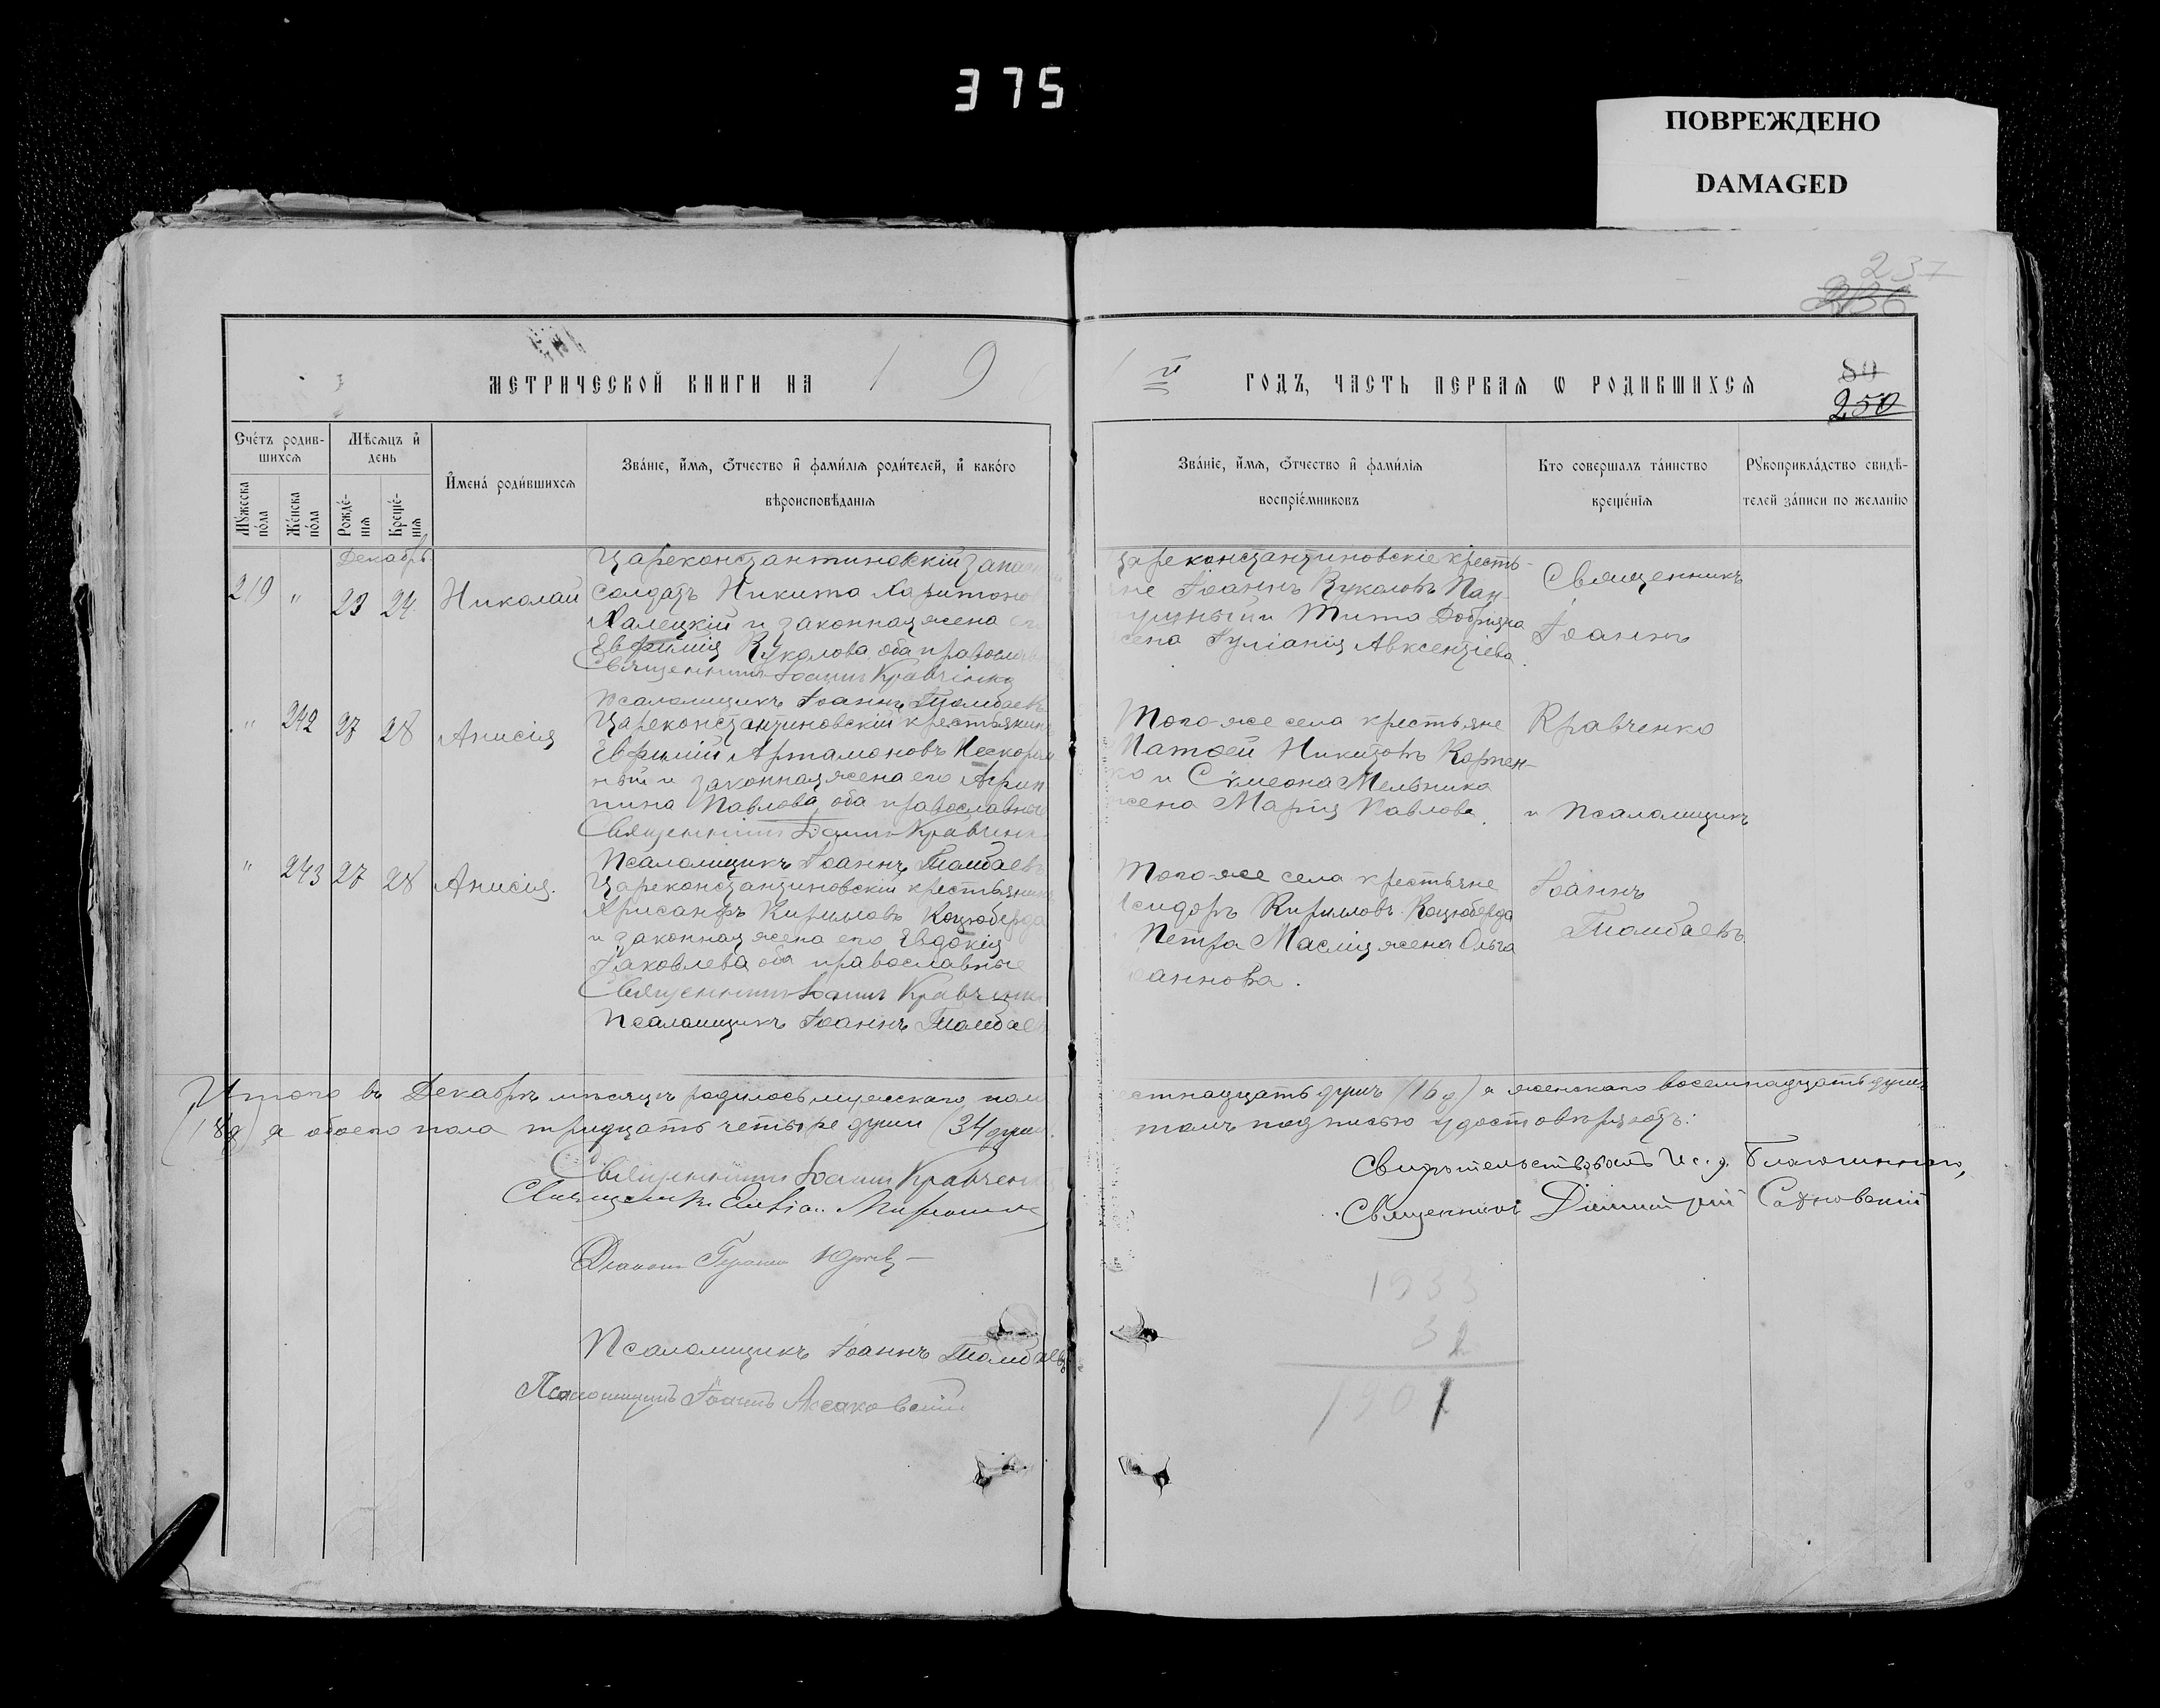 375
ПОВРЕЖДЕНО
DAMAGED
237
236
МЕТРИЧЕСКОЙ КНИГИ НА 1 9
1 й ГОДЪ, ЧАСТЬ ПЕРВАЯ Ѡ РОДИВШИХСЯ
80
250
Счétъ родив-
шихся
Мѣсяцъ и
день
Мужеска
пола
Женска
пола
Рожде-
нія
Креще-
нія
Имена родившихся
Званіе, имя, отчество и фамилія родителей, и какого
вѣроисповѣданія
Званіе, имя, отчество и фамилія
воспріемниковъ
Кто совершалъ таинство
крещенія
Рукоприкладство свидѣ-
телей записи по желанію
Декабрь
219 " 23 24 Николай
Цареконстантиновскій
солдатъ Никита Харитонов
Халецкій и законная жена его
Евфимія Куколова оба православ
Священникъ Іоаннъ Кравченко
Псаломщикъ Іоаннъ Томбаевъ
Цареконстантиновскіе кресть-
яне Іоаннъ Куколовъ
и Тита
жена Іуліанія Авксентіева.
Священникъ
Іоаннъ
" 242 27 28 Анисія
Цареконстантиновскій крестьянинъ
Евфимій Артамоновъ Нескором
ный и законная жена его Агрип
пина Павлова, оба православные
Священникъ Іоаннъ Кравченко
Псаломщикъ Іоаннъ Томбаевъ
Того-же села крестьяне
Матфей Никитовъ Карпен-
ко и Сумеона Мельника
жена Марія Павлова.
Кравченко
и Псаломщикъ
" 243 27 28 Анисія.
Цареконстантиновскій крестьянинъ
Хрисанфъ Кириловъ Коцюберда
и законная жена его Евдокія
Іаковлева оба православные
Священникъ Іоаннъ Кравченко
Псаломщикъ Іоаннъ Томбаевъ
Того-же села крестьяне
Исидоръ Кириловъ Коцюберда
Петра Маслія жена Ольга
Іоаннова.
Іоаннъ
Томбаевъ.
Итого въ Декабрѣ мѣсяцѣ родилось мужескаго пола
естнадцать душъ (16 д) а женскаго восемнадцать душъ
(18 д) а обоего пола тридцать четыре души (34 души.
томъ подписью удостовѣряютъ:
Священникъ Іоаннъ Кравченко
Священникъ
Діаконъ
Псаломщикъ Іоаннъ Томбаевъ
Псаломщикъ Іоаннъ Аксаковскій
Свидѣтельствовалъ Ис. д. Благочиннаго,
Священникъ Димитрій Садновскій
1933
32
1901